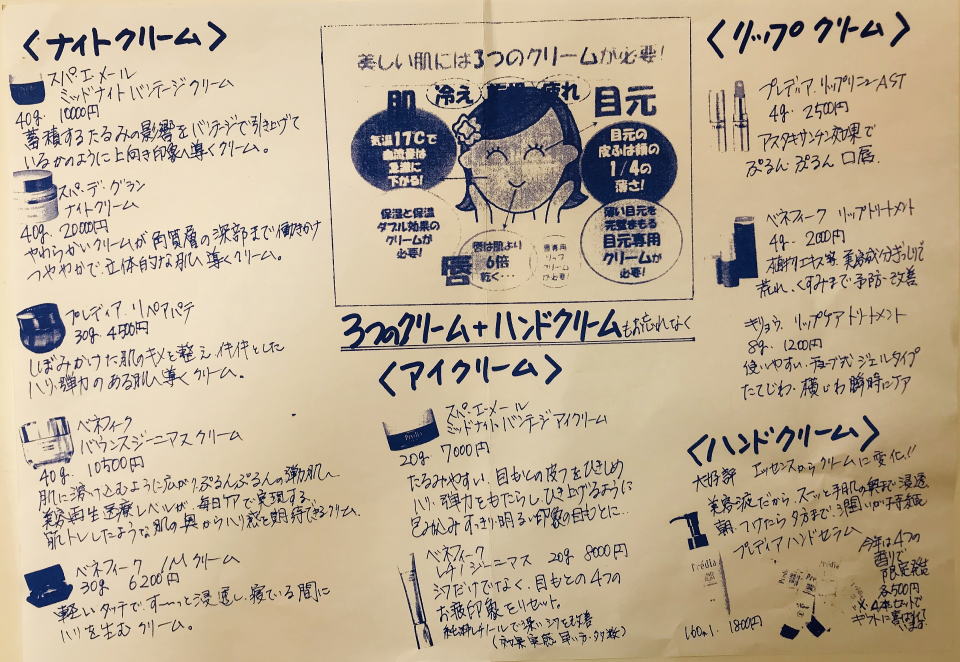 〈ナイトクリーム〉
スパ・エ・メール
ミッドナイト バンテージ クリーム
40g. 10000円
蓄積するたるみの影響をバンテージで引き上げて
いるかのように上向き印象へ導くクリーム。
スパ・デ・グラン
ナイトクリーム
40g. 20000円
やわらかいクリームが角質層の深部まで働きかけ
つややかで、立体的な肌へ導くクリーム。
プレディア・リペアパテ
30g 4500円
しぼみかけた肌のキメを整え イキイキとした
ハリ・弾力のある肌へ導くクリーム。
ベネフィーク
バウンスジーニアス クリーム
40g. 10500円
肌に溶け込むように広がり、ぷるんぷるんの弾力肌へ
美容再生医療レベルが、毎日ケアで実現する。
肌トレしたような肌の奥からハリ感を期待できるクリーム。
ベネフィーク 1M クリーム
30g 6200円
軽いタッチで、すーっと浸透し、寝ている間に
ハリを生むクリーム。
美しい肌には3つのクリームが必要!
肌
冷え
疲れ
目元
気温17℃で
血流量は
急激に
下がる!
目元の
皮ふは頬の
1/4の
薄さ!
保湿と保温
ダブル効果の
クリームが
必要!
唇
唇は肌より
6倍
乾く…
唇専用
リップ
クリーム
が必要!
薄い目元を
目元専用
クリームが
必要!
3つのクリーム+ハンドクリームもお忘れなく
〈アイクリーム〉
スパ・エ・メール
ミッドナイト バンテージ アイクリーム
20g. 7000円
たるみやすい、目もとの皮フをひきしめ
ハリ・弾力をもたらし、ひき上げるように
包み込みすっきり明るい印象の目もとに…
ベネフィーク
レチノジーニアス 20g 8000円
シワだけでなく、目もとの4つの
お疲れ印象をリセット。
純粋レチノールで深いシワを改善
(効果実感 早い方・多数)
〈リップクリーム〉
プレディア リップリニュー AST
4g. 2500円
アスタキサンチン効果で
ぷるん・ぷるん 口唇。
ベネフィーク リップトリートメント
4g. 2000円
植物エキス等 美容成分ぎっしりで
荒れ、くすみまで予防・改善
キリョウ リップケア トリートメント
8g. 1200円
使いやすい、チューブ式ジェルタイプ
たてじわ・横じわ 瞬時にケア
〈ハンドクリーム〉
大好評 エッセンスからクリームに変化!!
美容液だから、スーッと手肌の奥まで浸透。
朝、つけたら夕方まで、潤いが持続
プレディア ハンドセラム
160ml. 1800円
今年は4つの
香りで
限定発売
各500円
※4本セットで
ギフトに喜ばれて
います